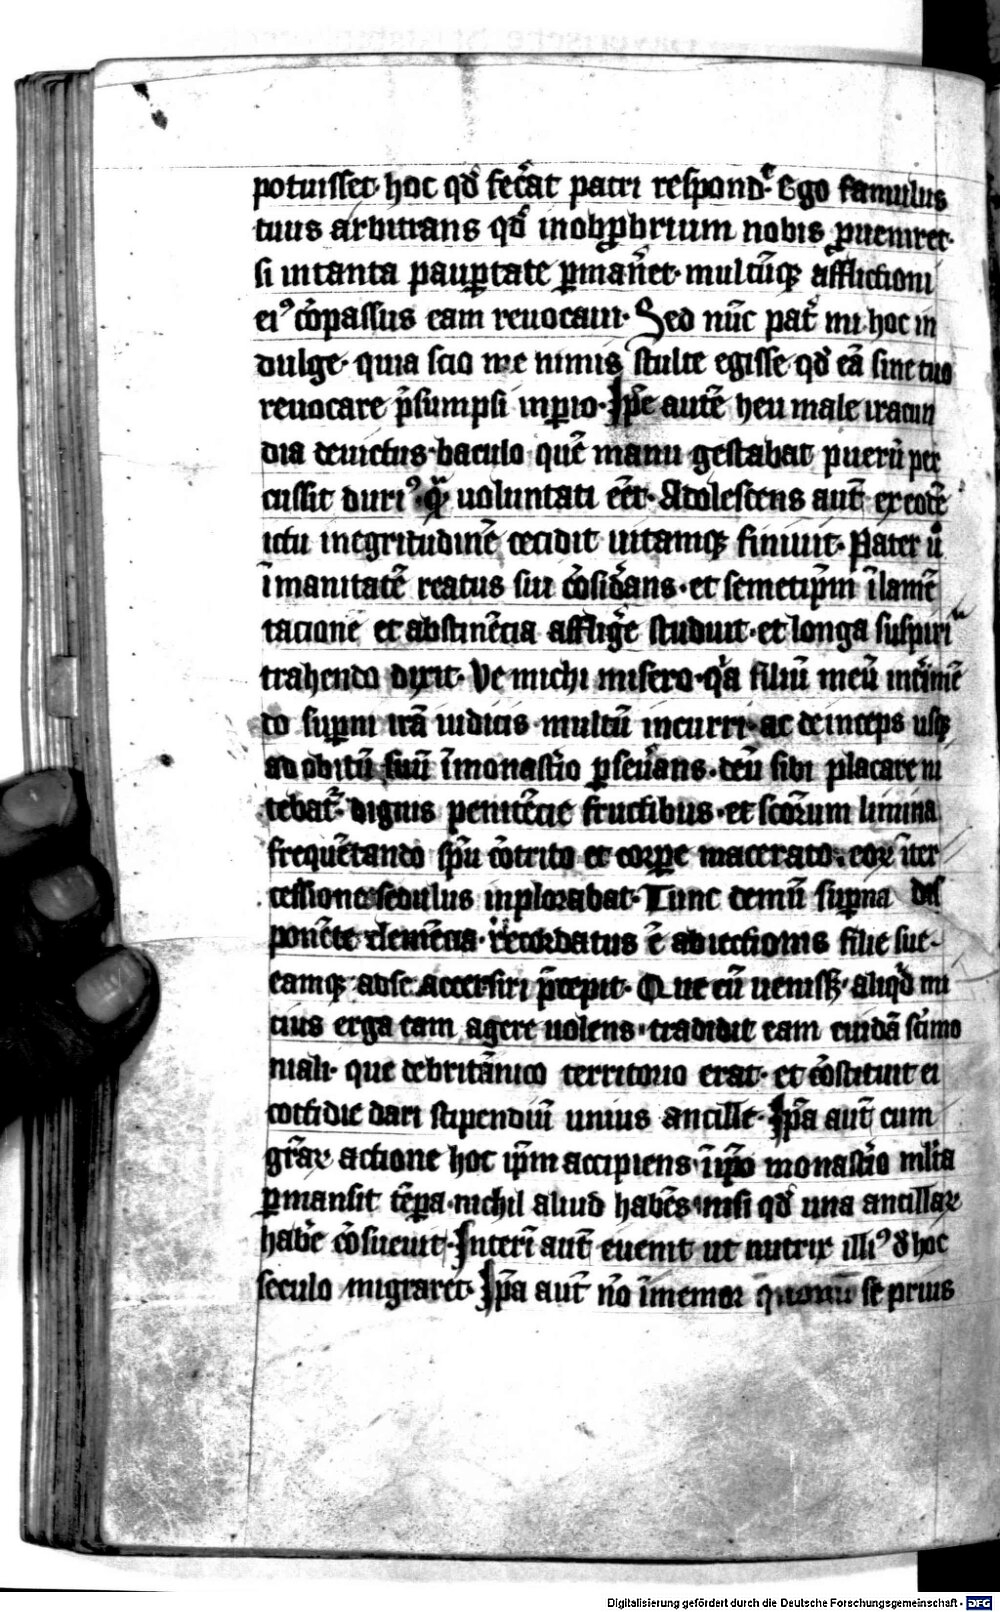 potuisset· hoc qđ fec̄at patri respond̄· Ego famulus
tuus arbitrans qđ inobp̱brium nobis ꝓueniret·
si intanta paup̱tate p̱man̄et· multūqꝫ afflictioni
eiꝰ cōpassus eam reuocaui· Sed nūc pat̄ mi hoc in
dulge· quia scio me nimis stulte egisse qđ eā sine tuo
reuocare p̄sumpsi inp̱io· Ip̄e autē heu male iracun
dia deuictus baculo quē manu gestabat puerū per
cussit duriꝰ· q̄ uoluntati eēt· Adolescens aut̄ ex eodē
ictu inegritudinē cecidit uitamqꝫ finiuit· Pater ů
īmanitatē reatus sui cōsid̄ans· et semetip̄m īlamē
tacione et abstinēcia affliḡe studuit· et longa suspiria
trahendo dixit· Ve michi misero· qͥa filiū meū int̄imē
do sup̱ni irā iudicis multū incurri· ac deinceps usqꝫ
ad obitū suū īmonast̄io p̱seu̅ans· deū sibi placare ni
tebat̄· dignis penitēcie fructibus· et sc̄orum limina
frequētando sp̄u cōtrito et corp̱e macerato· eoꝝ īter
cessione sedulus inplorabat· Tunc demū sup̱na dis
ponēte clemēcia· recordatus ē abiectionis filie sue·
eamqꝫ adse accersiri p̄cepit· Que cū uenissꝫ· aliqͥd mi
cius erga eam agere uolens· tradidit eam cuidā sc̄imo
niali· que debritānico territorio erat· et cōstituit ei
cottidie dari stipendiū unius ancille· Ip̄a aut̄ cum
gr̄aꝝ actione hoc ip̄m accipiens· īip̄o monast̄io ml̄ta
p̱mansit tēp̱a· nichil aliud habēs nisi qđ una ancillaꝝ
hab̄e cōsueuit· Interī aut̄ euenit ut nutrix illiꝰ đ hoc
seculo migraret· Ip̄a aut̄ nō īmemor se prius